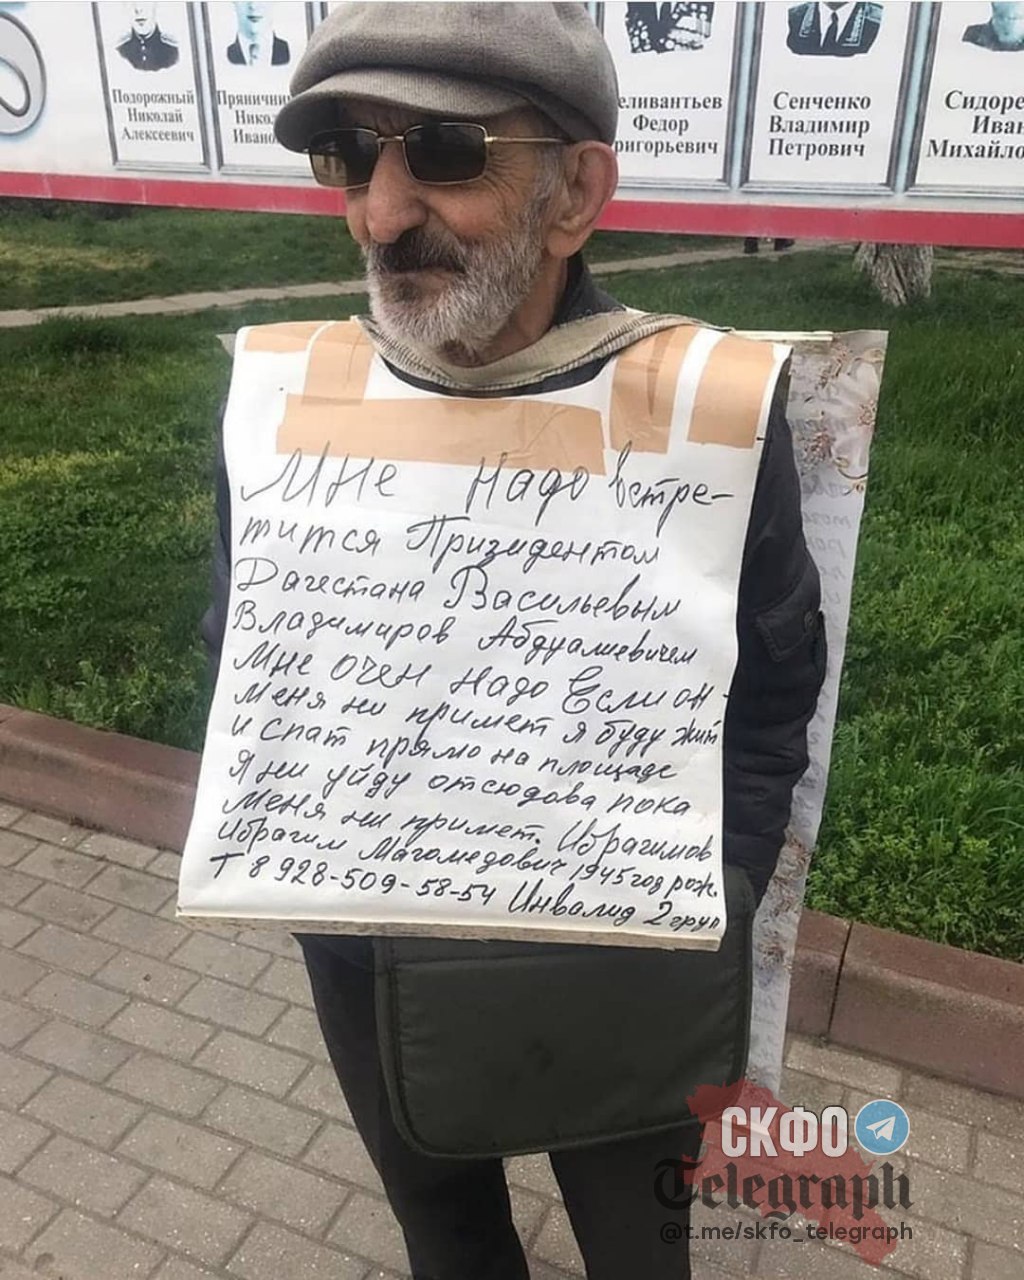 Подорожный
Николай
Алексеевич
Прянични
Никол
Ивано
еливантьев
Федор
ригорьевич
Сенченко
Владимир
Петрович
Сидоре
Иван
Михайло
Мне надо встре-
тится Призидентом
Дагестана Васильевым
Владимиров Абдуалиевичем
Мне очен надо Если он
меня ни примет я буду жит
и спат прямо на площаде
я ни уйду отсюдова пока
меня ни примет. Ибрагимов
Ибрагим Магомедович 1945 год рож.
Т 8 928-509-58-54 Инвалид 2 груп
СКФО
Telegraph
@t.me/skfo_telegraph